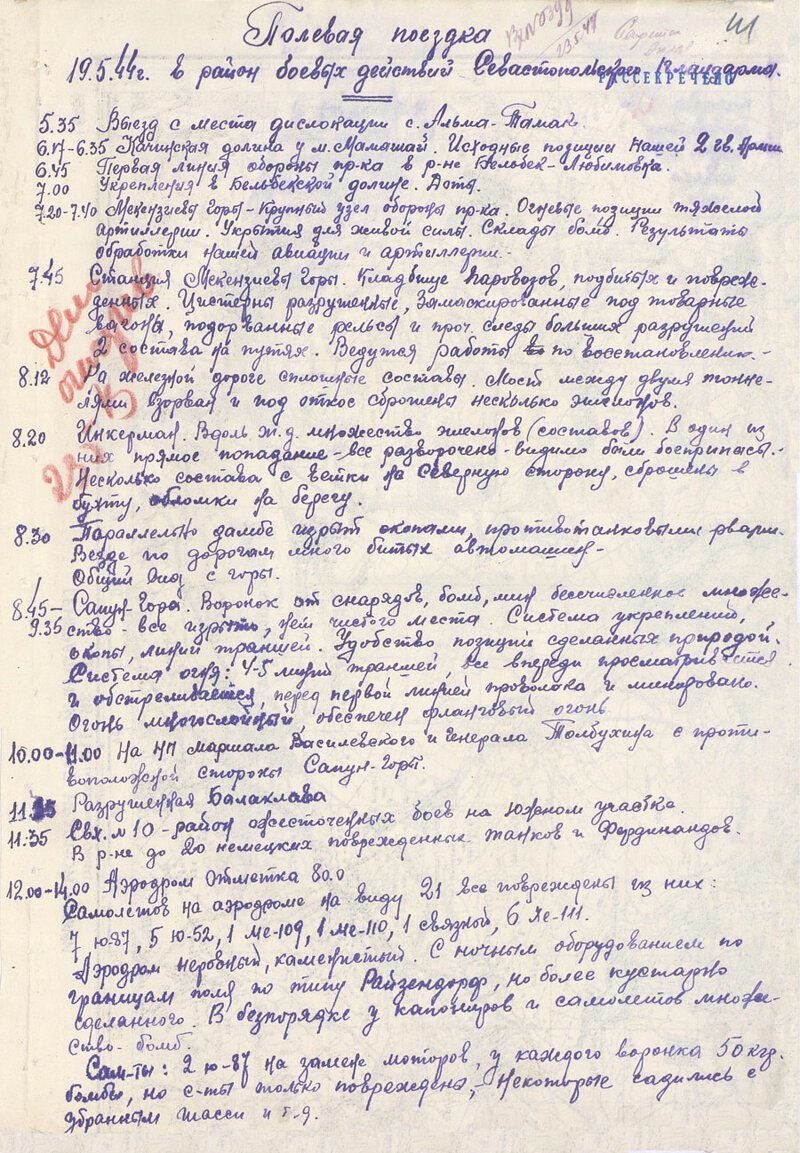 Полевая поездка
19.5.44г. в район боевых действий Севастопольского плацдарма.
РАССЕКРЕЧЕНО
5.35 Выезд с места дислокации с. Альма-Тамак.
6.17-6.35 Качинская долина у м. Мамашай. Исходные позиции нашей 2 гв. Армии
6.45 Первая линия обороны пр-ка в р-не Бельбек-Любимовка.
7.00 Укрепления в Бельбекской долине. Доты.
7.20-7.40 Мекензиевы Горы-Крупный узел обороны пр-ка. Огневые позиции тяжелой
артиллерии. Укрытия для живой силы. Склады бомб. Результаты
обработки нашей авиации и артиллерии.-
7.45 Станция Мекензиевы Горы. Кладбище паровозов, подбитых и повреж-
денных. Цистерны разрушенные, замаскированные под товарные
вагоны, подорванные рельсы и проч. следы больших разрушений
2 состава на путях. Ведутся работы по восстановлению.-
8.12 На железной дороге сплошные составы. Мост между двумя тонне-
лями взорван и под откос сброшены несколько эшелонов.
8.20 Инкерман. Вдоль ж.д. множество эшелонов (составов). В один из
них прямое попадание-все разворочено-видимо были боеприпасы.-
Несколько состава с ветки на Северную сторону, сброшены в
бухту, обломки на берегу.
8.30 Параллельно дамбе изрыт окопами, противотанковыми рвами.
Везде по дорогам много битых автомашин-
Общий вид с горы.
8.45- Сапун-Гора. Воронок от снарядов, бомб, мин бесчисленное множе-
9.35 ство- все изрыто, нет чистого места. Система укреплений,
окопы, линий траншей. Удобство позиций сделанных природой.
Система огня: 4-5 линий траншей, все впереди просматривается
и обстреливается, перед первой линией проволока и минировано.
Огонь многослойный, обеспечен фланговый огонь
10.00-11.00 На НП Маршала Василевского и Генерала Толбухина с проти-
воположной стороны Сапун-Горы.
Разрушенная Балаклава
11.35 Свх. №10-район ожесточенных боев на южном участке.
В р-не до 20 немецких поврежденных танков и Фердинандов.
12.00-14.00 Аэродром Отметка 80.0
Самолетов на аэродроме на виду 21 все повреждены из них:
7 ю-87, 5 ю-52, 1 Ме-109, 1 Ме-110, 1 связной, 6 Хе-111.
Аэродром неровный, каменистый. С ночным оборудованием по
границам поля по типу Райзендорф, но более кустарно
сделанного. В безпорядке у капониров и самолетов множе-
ство- бомб.
Сам-ты: 2 ю-87 на замене моторов, у каждого воронка 50 кгр.
бомбы, но с-ты только повреждены,- Некоторые садились с
убранным шасси и т.д.